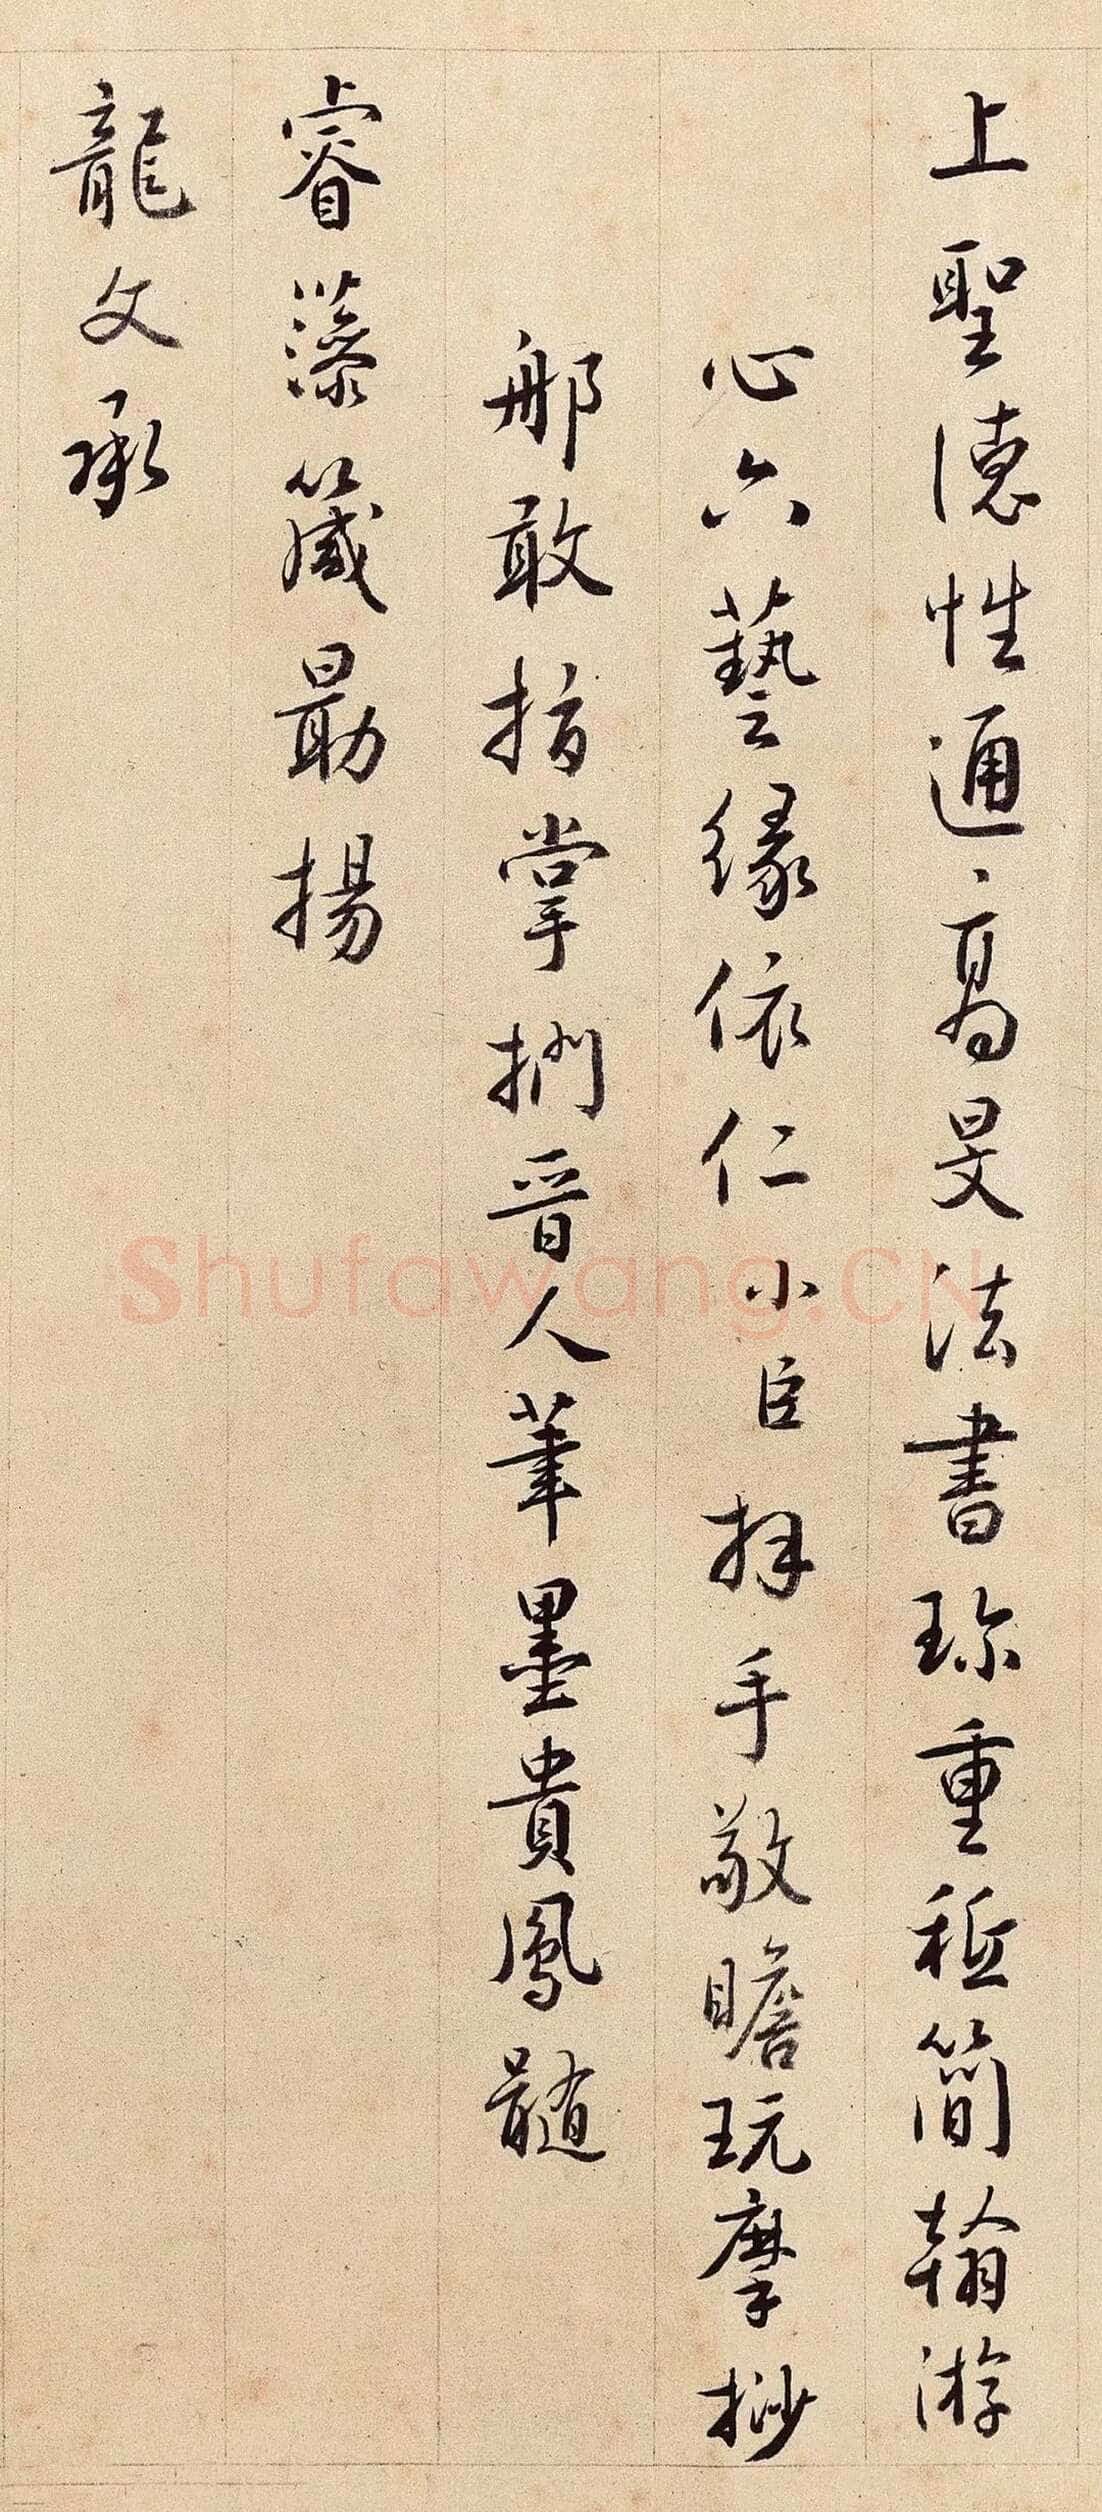 上聖德性通高旻法書珍重秪簡翰游
心六藝緣依仁小臣拜手敬瞻玩摩挱
那敢指掌捫晉人筆墨貴鳳髓
睿藻箴勗揚
龍文承
Shufawang.CN